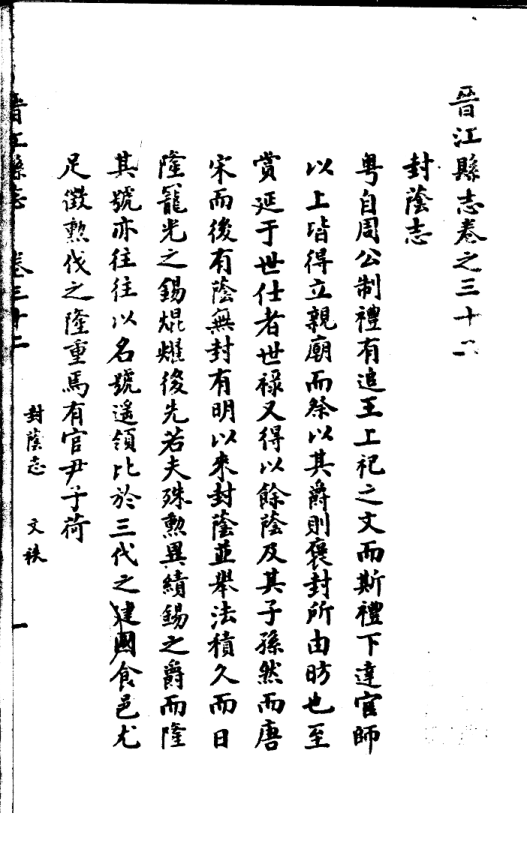 晉江縣志卷之三十二
封蔭志
粤自周公制禮有追王上祀之文而斯禮下達官師
以上皆得立親廟而祭以其爵則褒封所由昉也至
賞延于世仕者世禄又得以餘蔭及其子孫然而唐
宋而後有蔭無封有明以來封蔭並舉法積久而日
隆寵光之錫焜燿後先若夫殊勲異績錫之爵而隆
其號亦往往以名號遥領比於三代之建國食邑尤
足徵勲伐之隆重焉有官尹子荷
晉江縣志 卷三十二 封蔭志 文秩 一